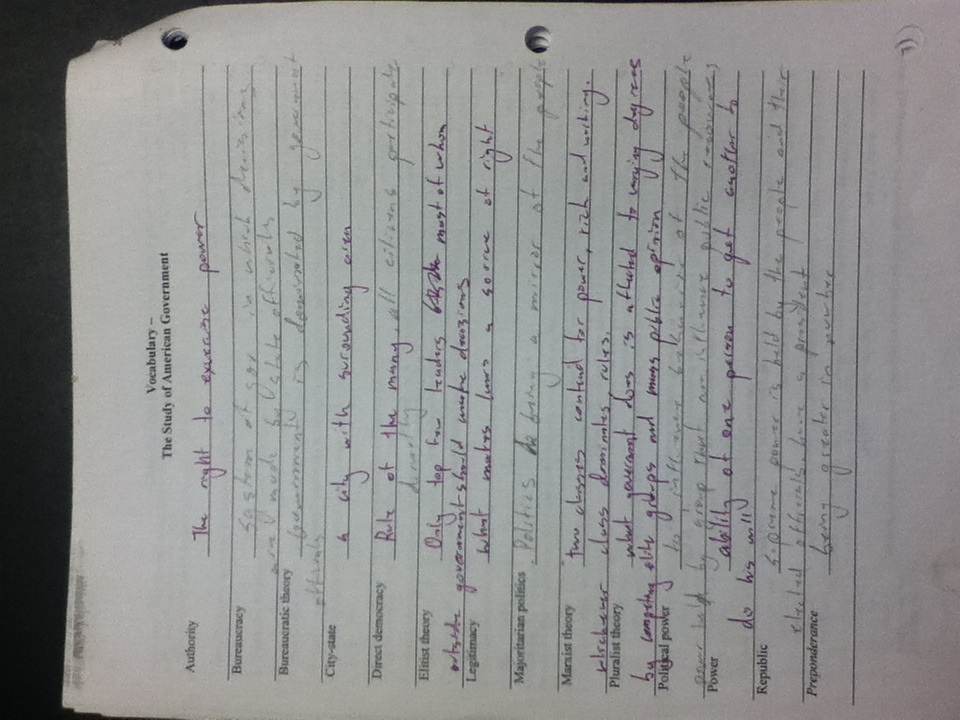 Vocabulary –
The Study of American Government
Authority The right to exercise power
Bureaucracy system of gov in which decisions
are made by state officials
Bureaucratic theory Government is dominated by government
officials
City-state a city with surounding area
Direct democracy Rule of the many. all citizens participate
directly
Elitist theory Only top few leaders most of whom
outside government should make decisions
Legitimacy What makes laws a source of right
Majoritarian politics Politics being a mirror of the people
Marxist theory two classes contend for power, rich and working.
whichever class dominates, rules.
Pluralist theory what goverment does is affected to varying degrees
by competing elite groups and mass public opinion
Political power to influence behavior of the people
power held by group that influence public resources
Power ability of one person to get another to
do his will
Republic supreme power is held by the people and their
elected officials. have a president
Preponderance being greater in number